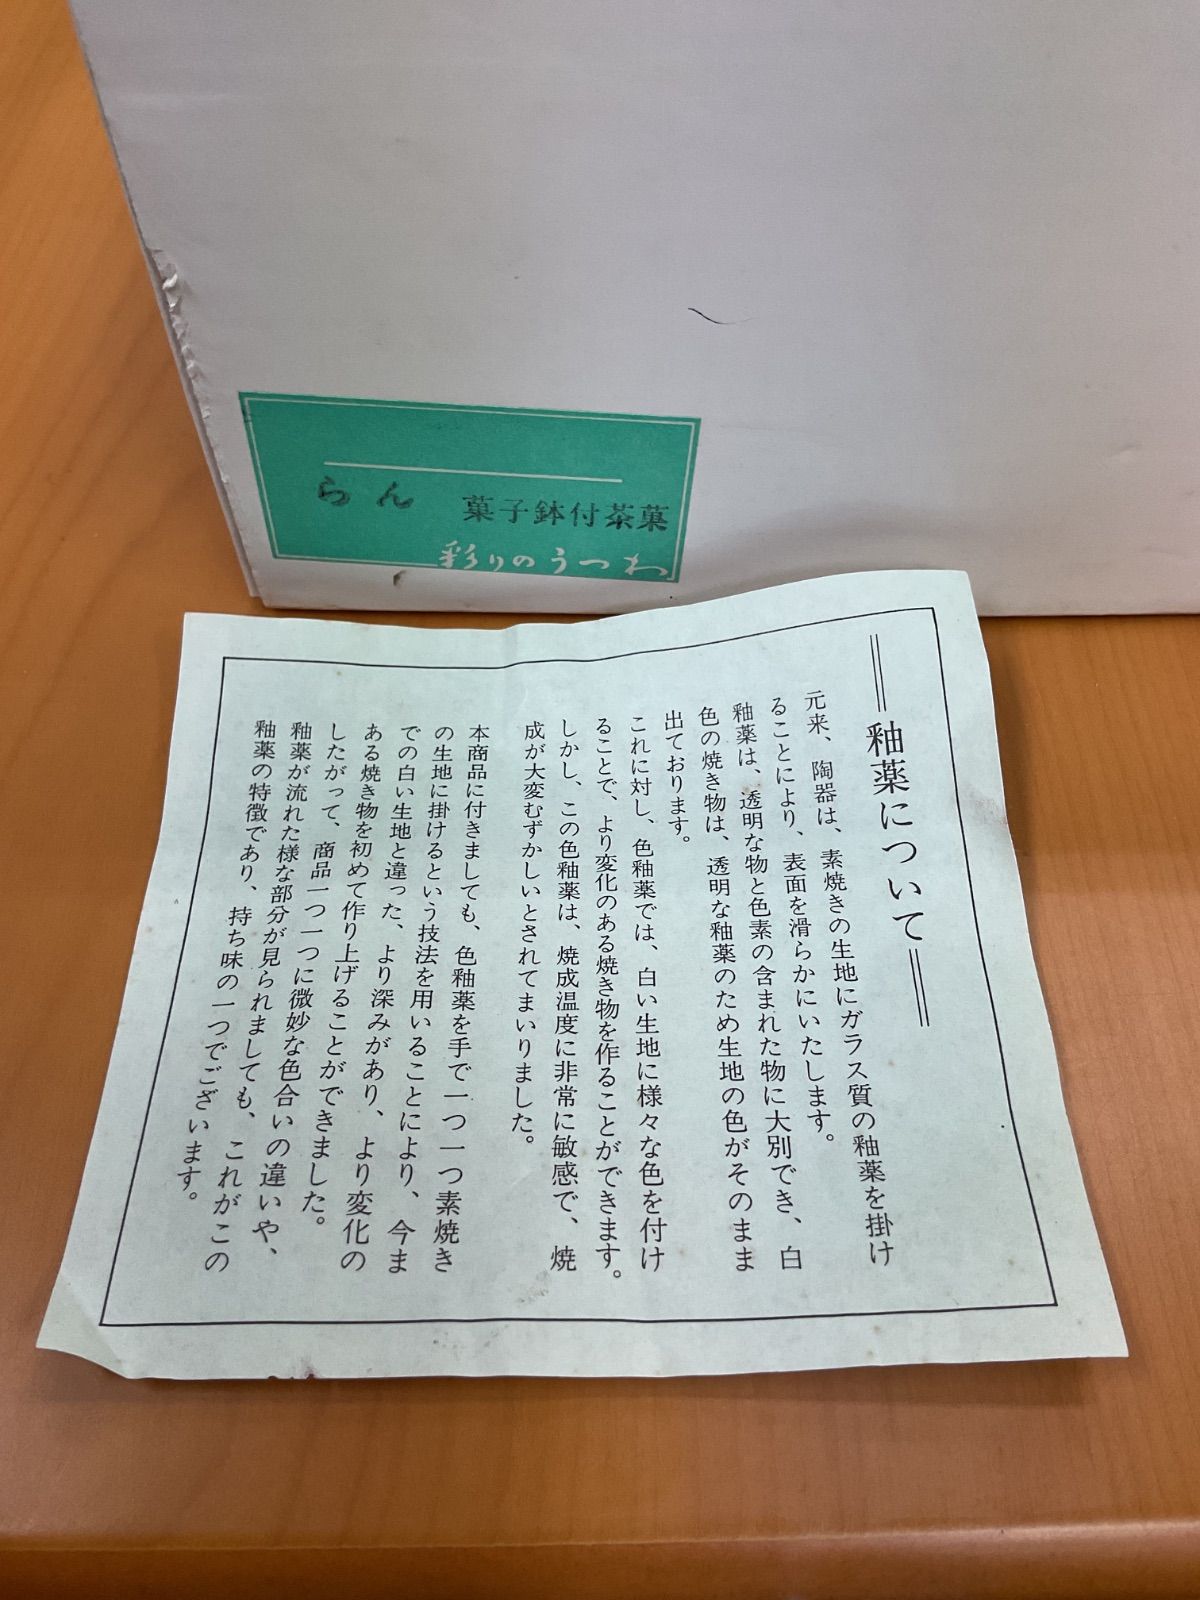 らん 菓子鉢付茶菓
彩りのうつわ
釉薬について
元来、陶器は、素焼きの生地にガラス質の釉薬を掛け
ることにより、表面を滑らかにいたします。
釉薬は、透明な物と色素の含まれた物に大別でき、白
色の焼き物は、透明な釉薬のため生地の色がそのまま
出ております。
これに対し、色釉薬では、白い生地に様々な色を付け
ることで、より変化のある焼き物を作ることができます。
しかし、この色釉薬は、焼成温度に非常に敏感で、焼
成が大変むずかしいとされてまいりました。
本商品に付きましても、色釉薬を手で一つ一つ素焼き
の生地に掛けるという技法を用いることにより、今ま
での白い生地と違った、より深みがあり、より変化の
ある焼き物を初めて作り上げることができました。
したがって、商品一つ一つに微妙な色合いの違いや、
釉薬が流れた様な部分が見られましても、これがこの
釉薬の特徴であり、持ち味の一つでございます。